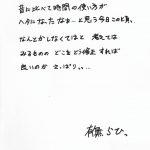 昔に比べて時間の使い方が
ヘタになったなぁ…と思う今日この頃。
なんとかしなくてはと 考えては
みるものの どこをどう修正すれば
良いのか さっぱり。。。
有無らひ。